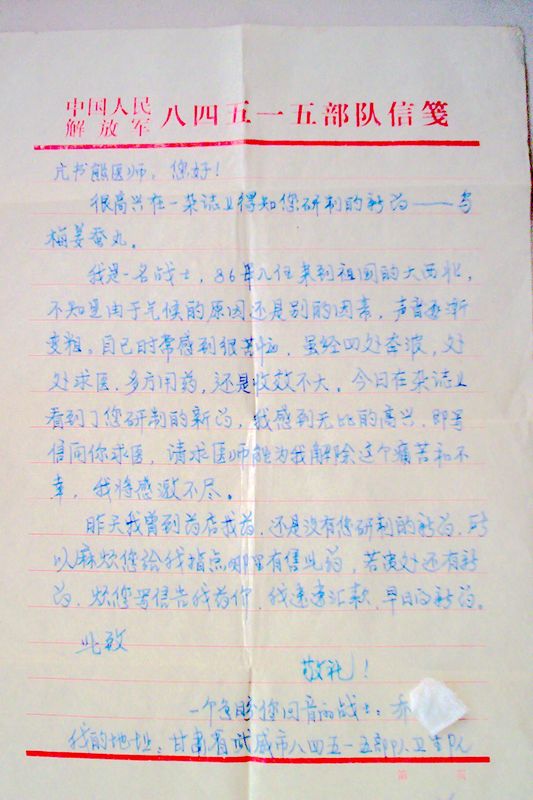 中国人民
解放军 八四五一五部队信笺
亢书能医师：您好！
很高兴在一杂志上得知您研制的新药——乌
梅姜蚕丸。
我是一名战士，86年入伍来到祖国的大西北，
不知是由于气候的原因还是别的因素，声音逐渐
变粗。自己时常感到很苦恼，虽经四处奔波，处
处求医，多方用药，还是收效不大，今日在杂志上
看到了您研制的新药，我感到无比的高兴，即写
信向你求医，请求医师能为我解除这个痛苦和不
幸，我将感激不尽。
昨天我曾到药店找药，还是没有您研制的新药，所
以麻烦您给我指点哪里有售此药，若您处还有新
药，烦您写信告我药价，我速速汇款，早日的新药。
此致
敬礼！
一个急盼您回音的战士：乔
我的地址：甘肃省武威市八四五一五部队卫生队
第 页